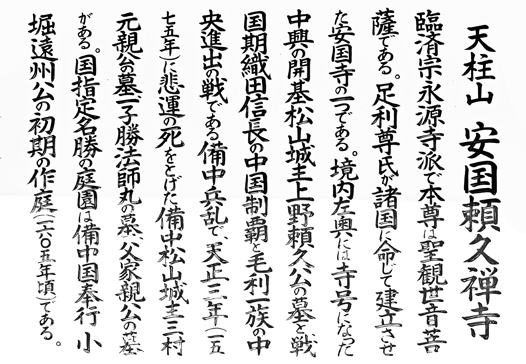 天柱山 安国頼久禅寺
臨済宗永源寺派で本尊は聖観世音菩
薩である。足利尊氏が諸国に命じて建立させ
た安国寺の一つである。境内左奥には寺号になった
中興の開基松山城主上野頼久公の墓と戦
国期織田信長の中国制覇と毛利一族の中
央進出の戦である備中兵乱で、天正三年(一五
七五年)に悲運の死をとげた備中松山城主三村
元親公の墓一子勝法師丸の墓、父家親公の墓
がある。国指定名勝の庭園は備中国奉行 小
堀遠州公の初期の作庭(一六〇五年頃)である。